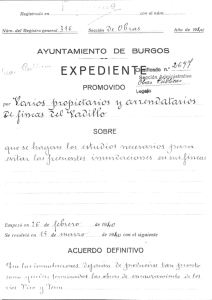 Registrado en con el núm.
Núm. del Registro general 316 Sección de Obras Año de 1940
AYUNTAMIENTO DE BURGOS
EXPEDIENTE
Clasificado n.º 2697
Sección administrativa
Obras Públicas
Legajo
PROMOVIDO
por Varios propietarios y arrendatarios
de fincas del Vadillo
SOBRE
que se hagan los estudios necesarios para
evitar las frecuentes inundaciones en sus fincas
Empezó en 26 de febrero de 1940
Se resolvió en 14 de marzo de 1940 con el siguiente
ACUERDO DEFINITIVO
Que las inundaciones dejarán de producirse tan pronto
como queden terminadas las obras de encauzamiento de los
ríos Pico y Vena